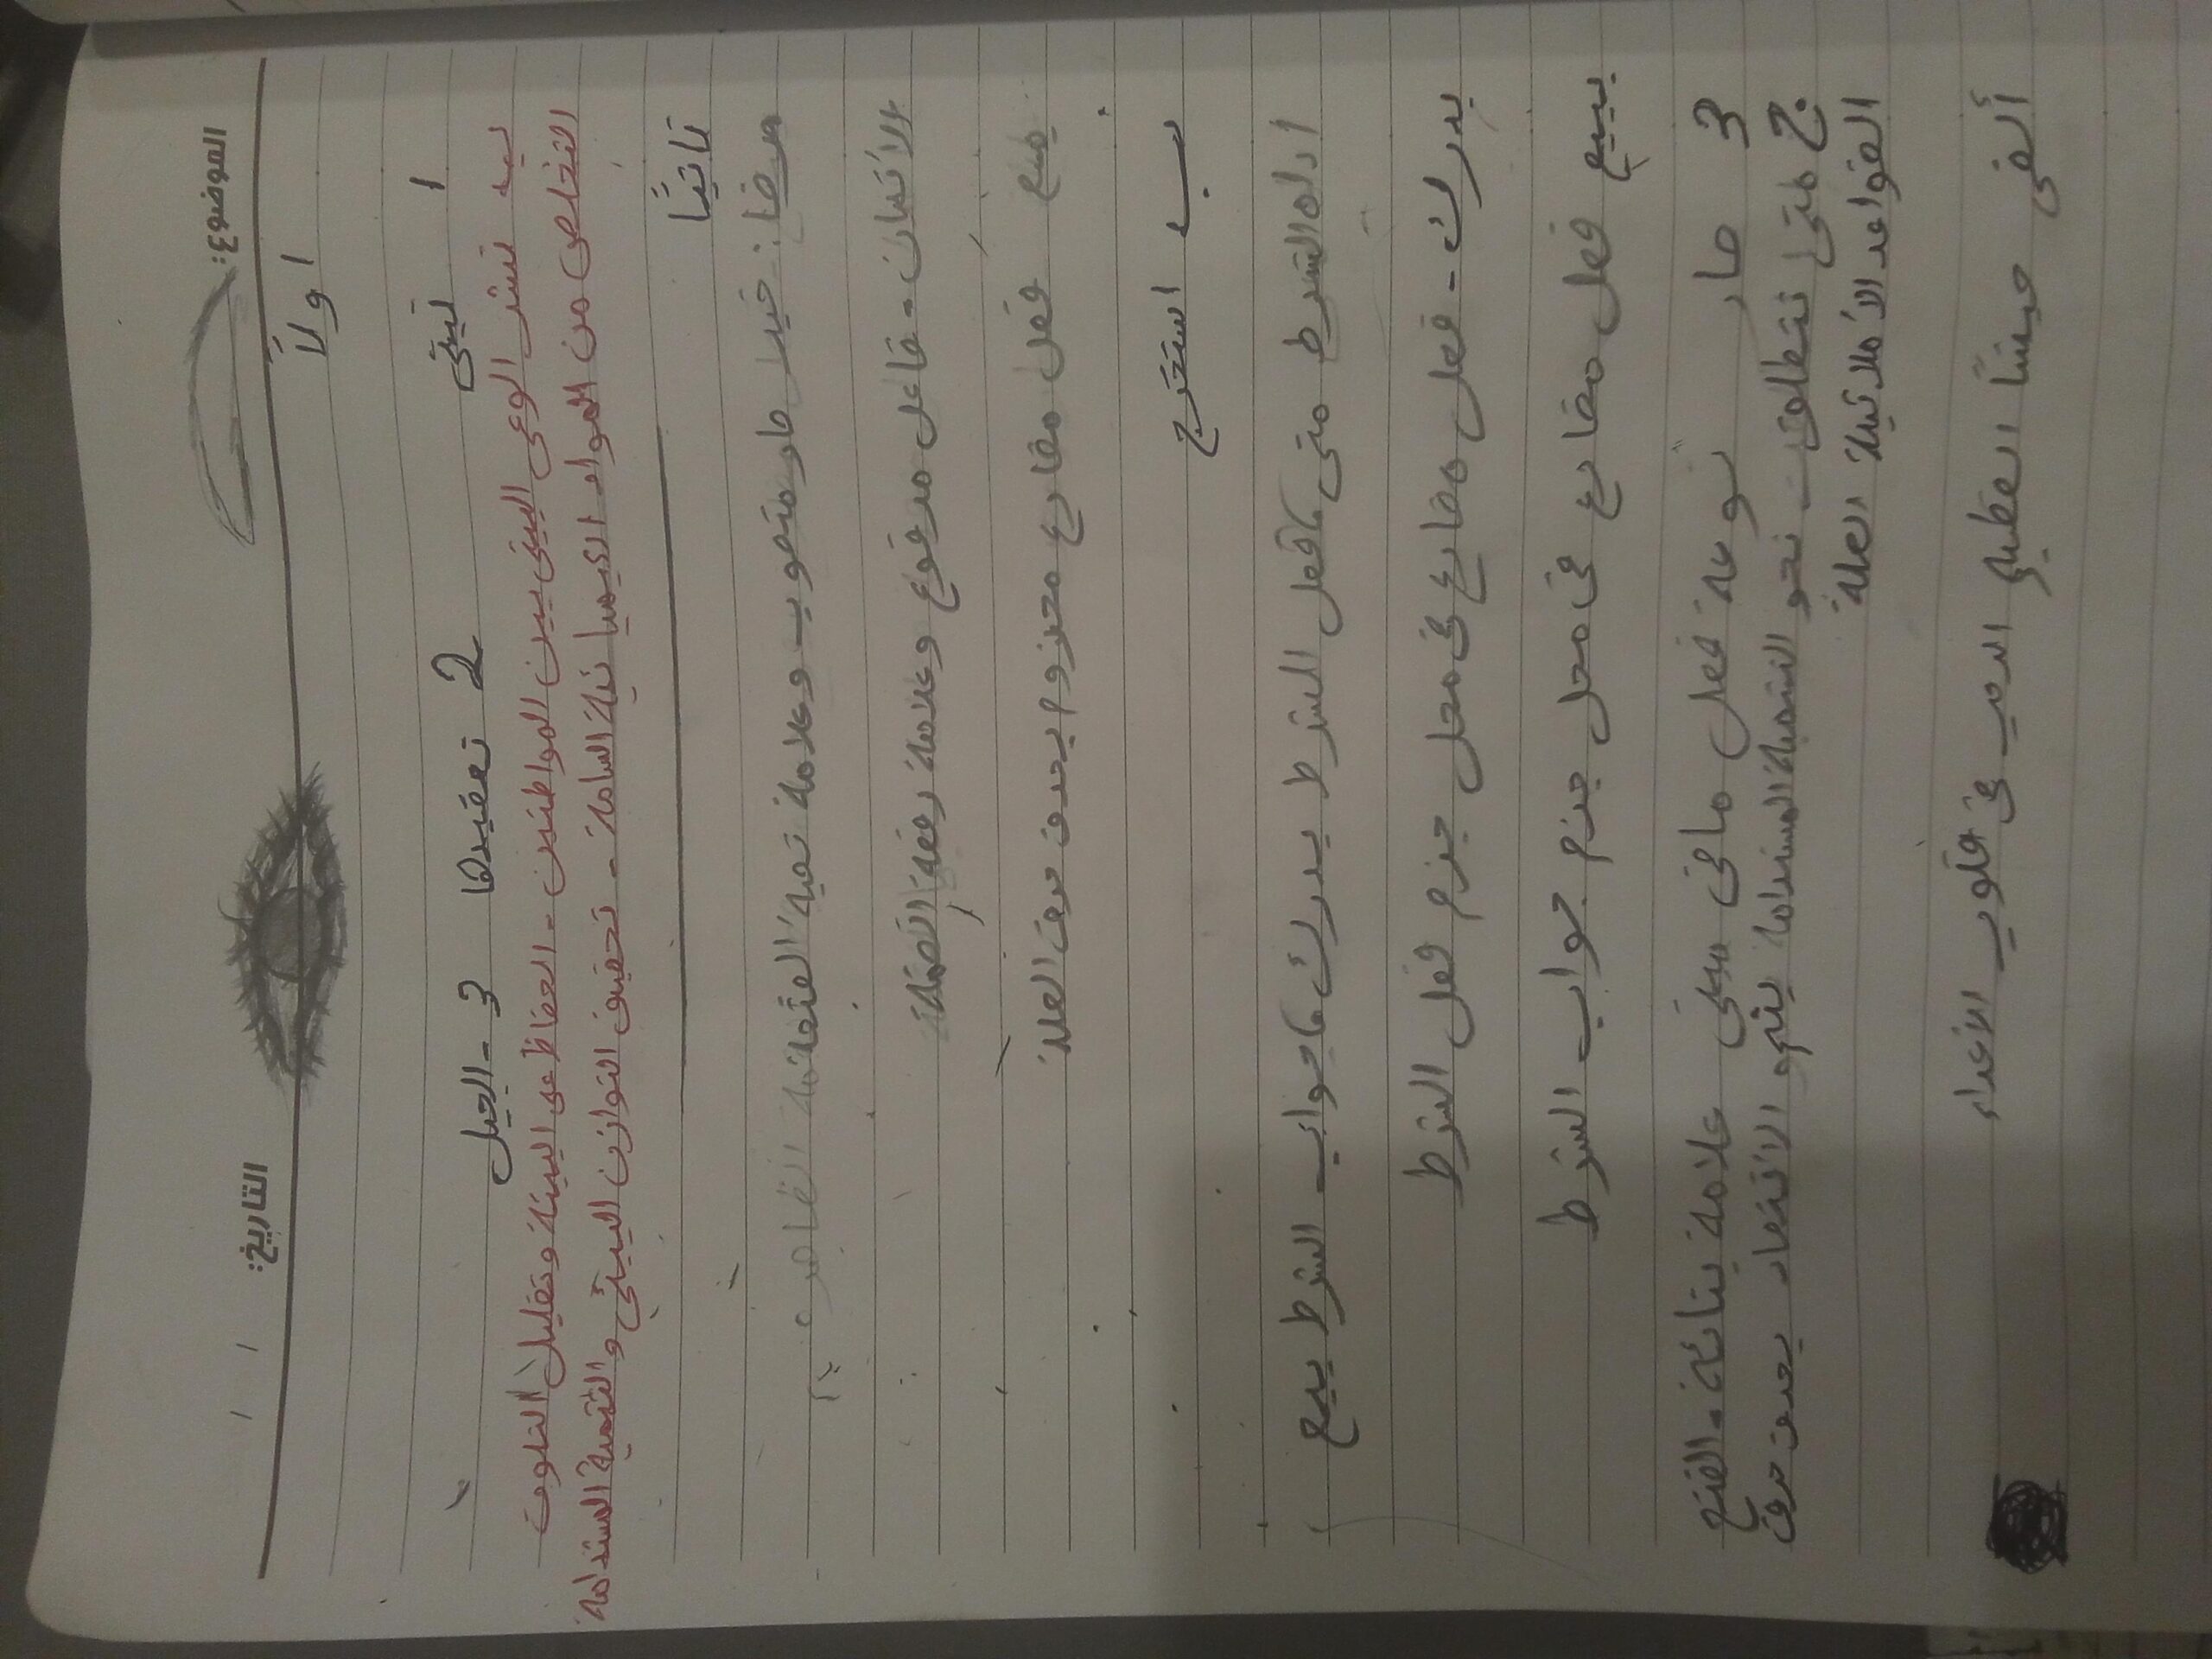 الموضوع: التاريخ: / /
اولاً
1 تبنى 2 تعقيدها 3 - الجيل
نشر الوعى البيئى بين المواطنين - الحفاظ على البيئة وتقليل التلوث
التخلص من المواد الكيميائية السامة - تحقيق التوازن البيئي والتنمية المستدامة
ثانيًا
منصوب وعلامة نصبه الفتحة الظاهرة
الأنسان - فاعل مرفوع وعلامة رفعة الضمة
فعل مضارع مجزوم بحذف حرف العلة
ب استخرج
اداه الشرط متى فعل الشرط يدرك جواب الشرط يبيع
يدرك - فعل مضارع فى محل جزم فعل الشرط
يبيع فعل مضارع فى محل جزم جواب الشرط
3 صار نوعة فعل ماضى مبنى علامة بنائة - الفتح
ج متى نتطلوت نحو التنمية المستدامة ينمو الاقتصاد بحذف حرف
العلة
القواعد الأملائية
ألقى جيشنا العظيم الرعب فى قلوب الأعداء